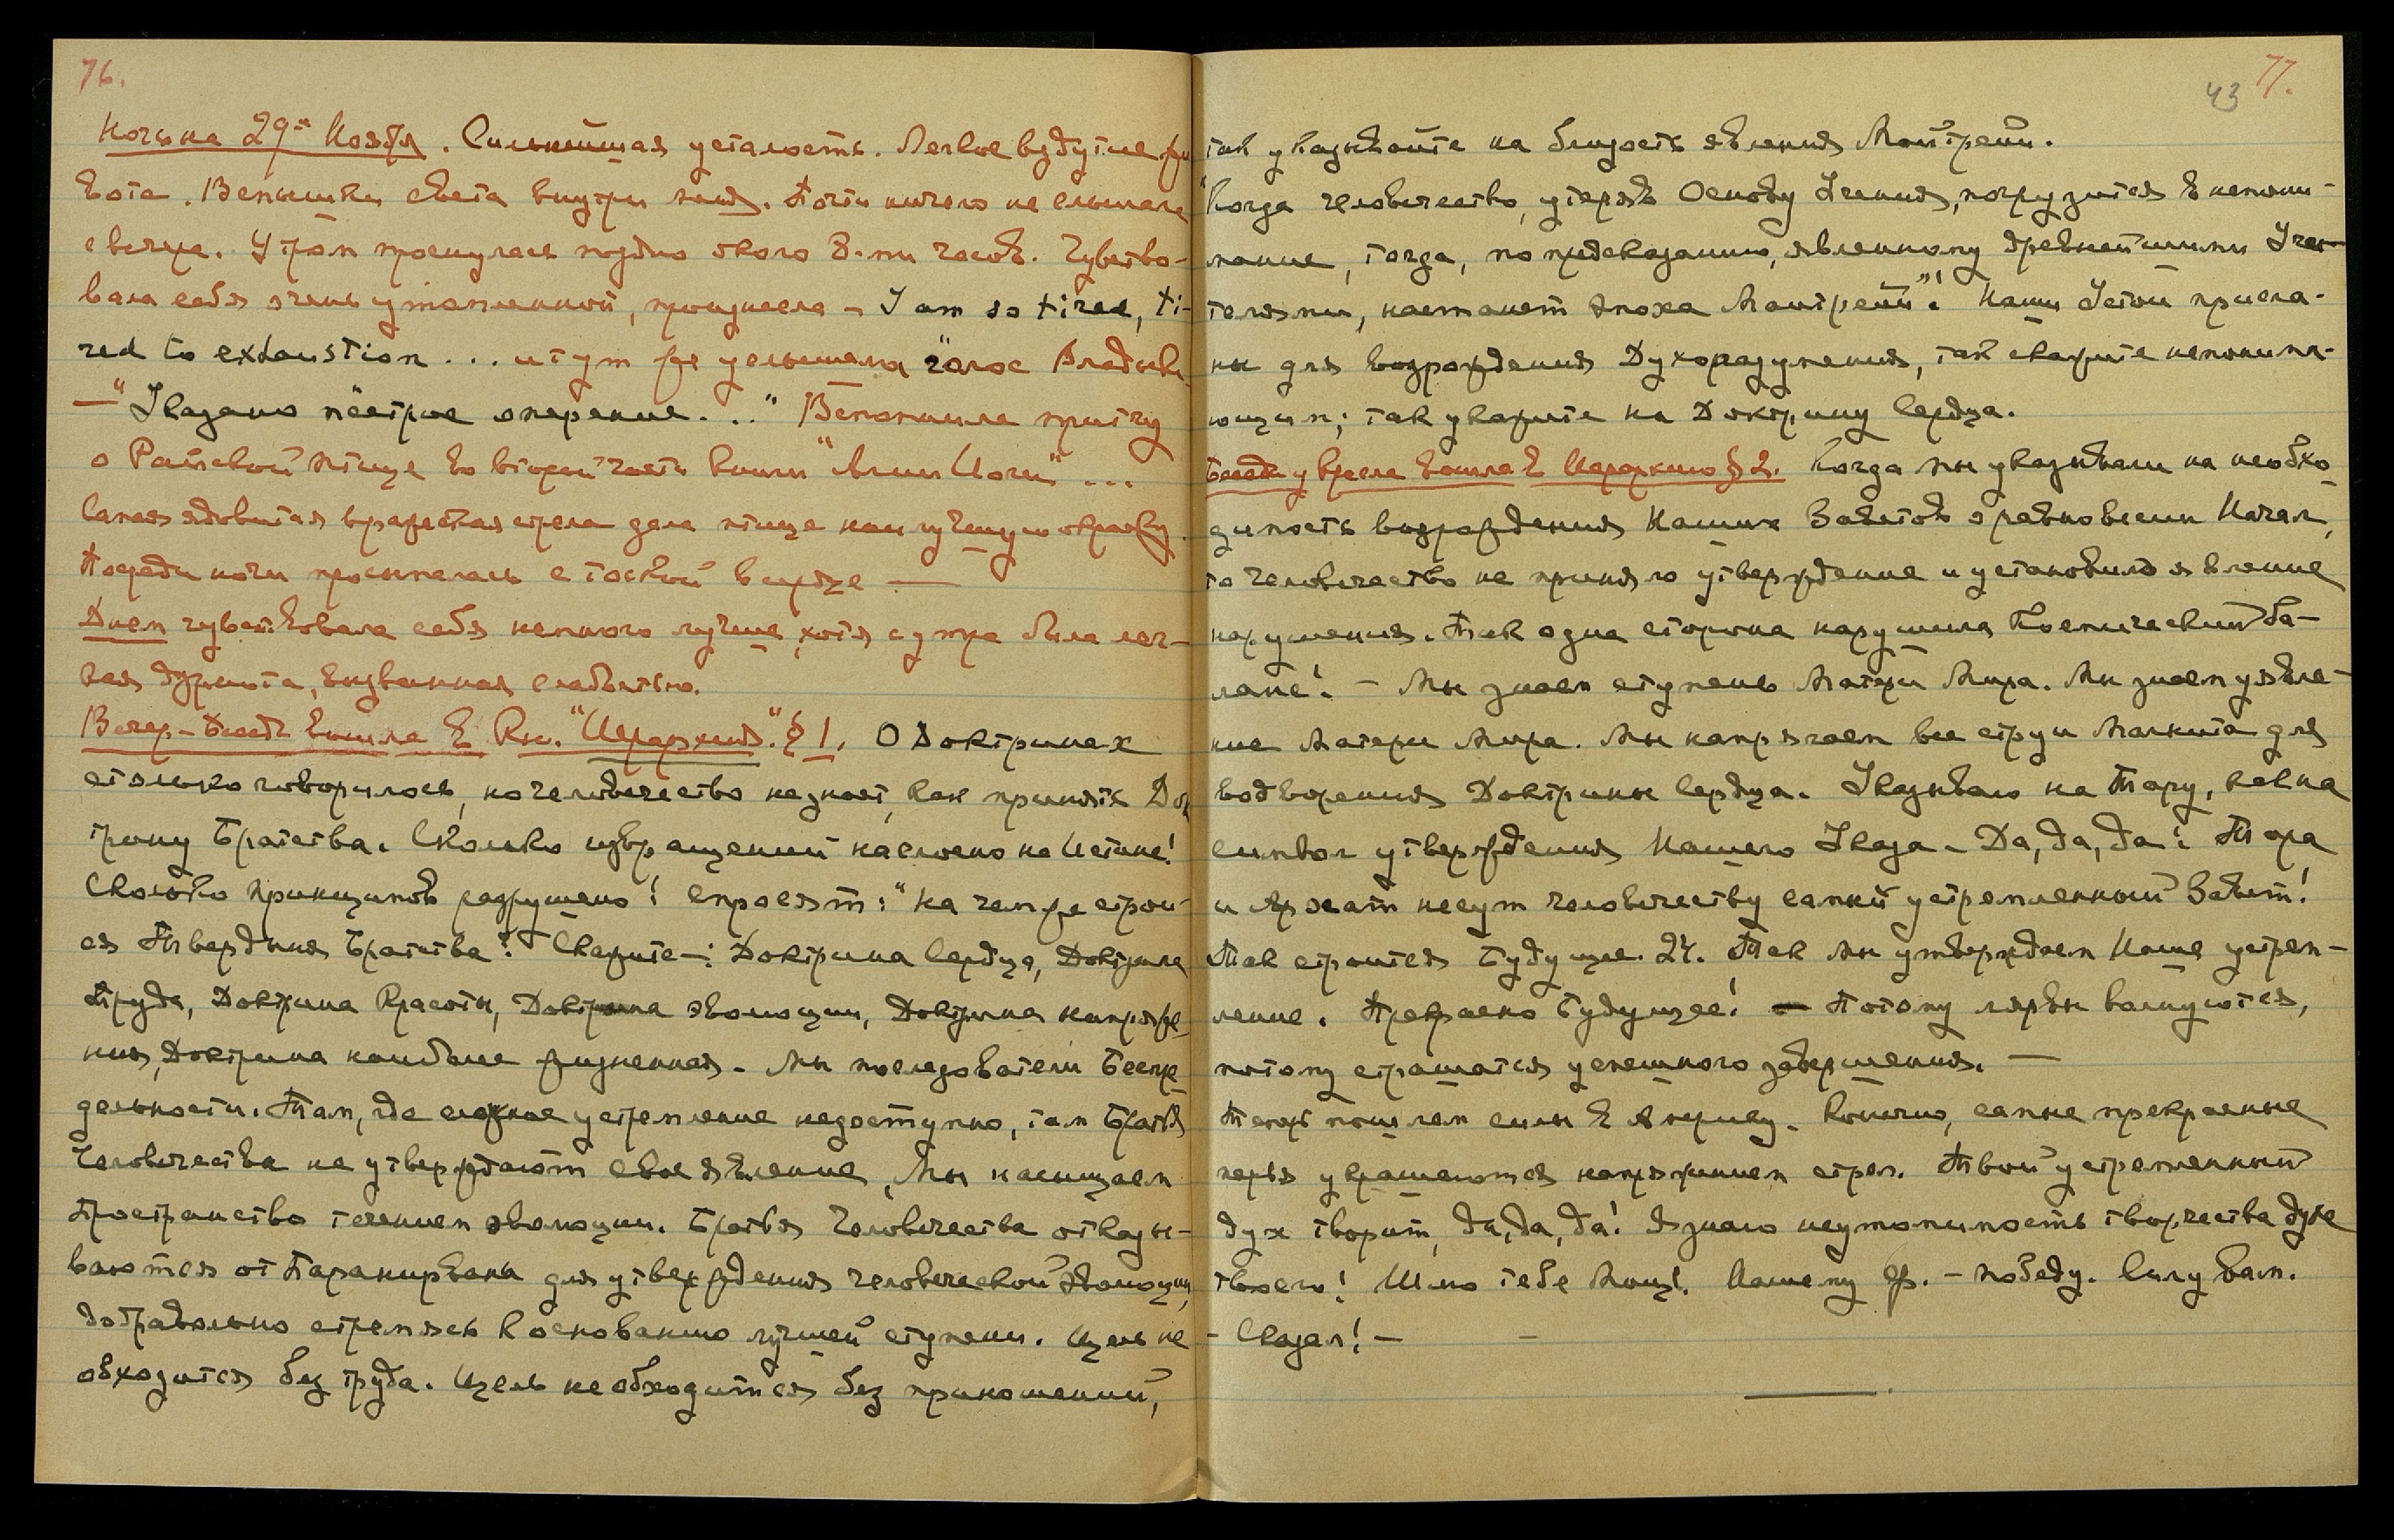 76.
Ночь на 29ое Ноября. Сильнейшая усталость. Легкое вздутие жи-
вота. Вспышки света внутри меня. Почти ничего не слышала
с вечера. Утром проснулась поздно около 8-ми часов. Чувство-
вала себя очень утомленной, произнесла – I am so tired, ti-
red to exhaustion... и тут же услышала голос Владыки
— "Указано пёстрое оперение..." Вспомнила притчу
о Райской птице во второй части книги "Агни Йоги"...
Самая ядовитая вражеская стрела дала птице наилучшую окраску.
Посреди ночи просыпалась с тоской в сердце —
Днем чувствовала себя немного лучше, хотя с утра была лег-
кая дурнота, вызванная слабостью.
Вечер – Беседа вошла в Кн. "Иерархия". § 1. О Доктринах
столько говорилось, но человечество не знает, как принять Док-
трину Братства. Сколько извращений наслоено на Истине!
Сколько принципов разрушено! Спросят: "На чем же строит-
ся Твердыня Братства? Скажите –: Доктрина Сердца, Доктрина
Труда, Доктрина Красоты, Доктрина эволюции, Доктрина напряже-
ния, Доктрина наиболее жизненная. – Мы последователи Беспре-
дельности. Там, где сложное устремление недоступно, там Братья
Человечества не утверждают свое явление. Мы насыщаем
Пространство течением эволюции. Братья Человечества отказы-
ваются от Паранирваны для утверждения человеческой Эволюции,
добровольно стремясь к основанию лучшей ступени. Цель не
обходится без труда. Цель не обходится без приношений,
43 77.
так указывайте на близость явления Майтрейи.
"Когда человечество, утеряв Основу Учения, погрузится в непони-
мание, тогда, по предсказанию, явленному древнейшими Учи-
телями, настанет эпоха Майтрейи"! Наши Устои присла-
ны для возрождения Духоразумения, так скажите непонима-
ющим; так укажите на Доктрину Сердца.
Беседа у кресла вошла в Иерархию § 2. Когда мы указывали на необхо-
димость возрождения Наших Заветов о равновесии Начал,
то человечество не приняло утверждение и установило явление
нарушения. Так одна сторона нарушила Космический ба-
ланс! – Мы знаем ступень Матери Мира. Мы знаем уявле-
ние Матери Мира. Мы напрягаем все струи Магнита для
водворения Доктрины Сердца. Указываю на Тару, как на
символ утверждения Нашего Указа – Да, да, да! Тара
и Архат несут человечеству самый устремленный Завет!
Так строится Будущее. 24. Так Мы утверждаем Наше устрем-
ление. Прекрасно Будущее! – Потому ларвы волнуются,
потому страшатся успешного завершения. —
Теперь пошлем силы в Америку. Конечно, самые прекрасные
перья украшаются напряжением стрел. Твой устремленный
дух творит, да, да, да! Я знаю неутомимость творчества духа
твоего! Шлю тебе Мощь! Нашему Ф. – победу. Силу вам.
– Сказал! – –